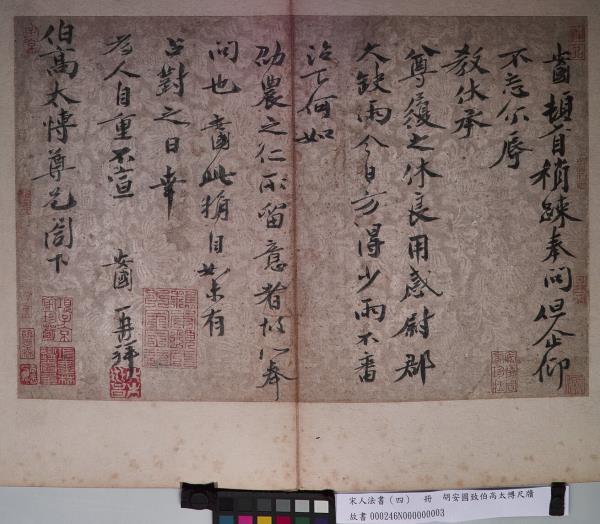 安國頓首稍踈奉問但企仰
不忘尔辱
教休承
尊履之休良用感慰郡
久缺雨今日方得少雨不審
治下何如
劭農之仁所留意者故以奉
問也安國此婿自如未有
占對之日幸
為人自重不宣 安國再拜
伯高太博尊兄閤下
宋人法書(四) 冊 胡安國致伯高太博尺牘
故書000246N000000003